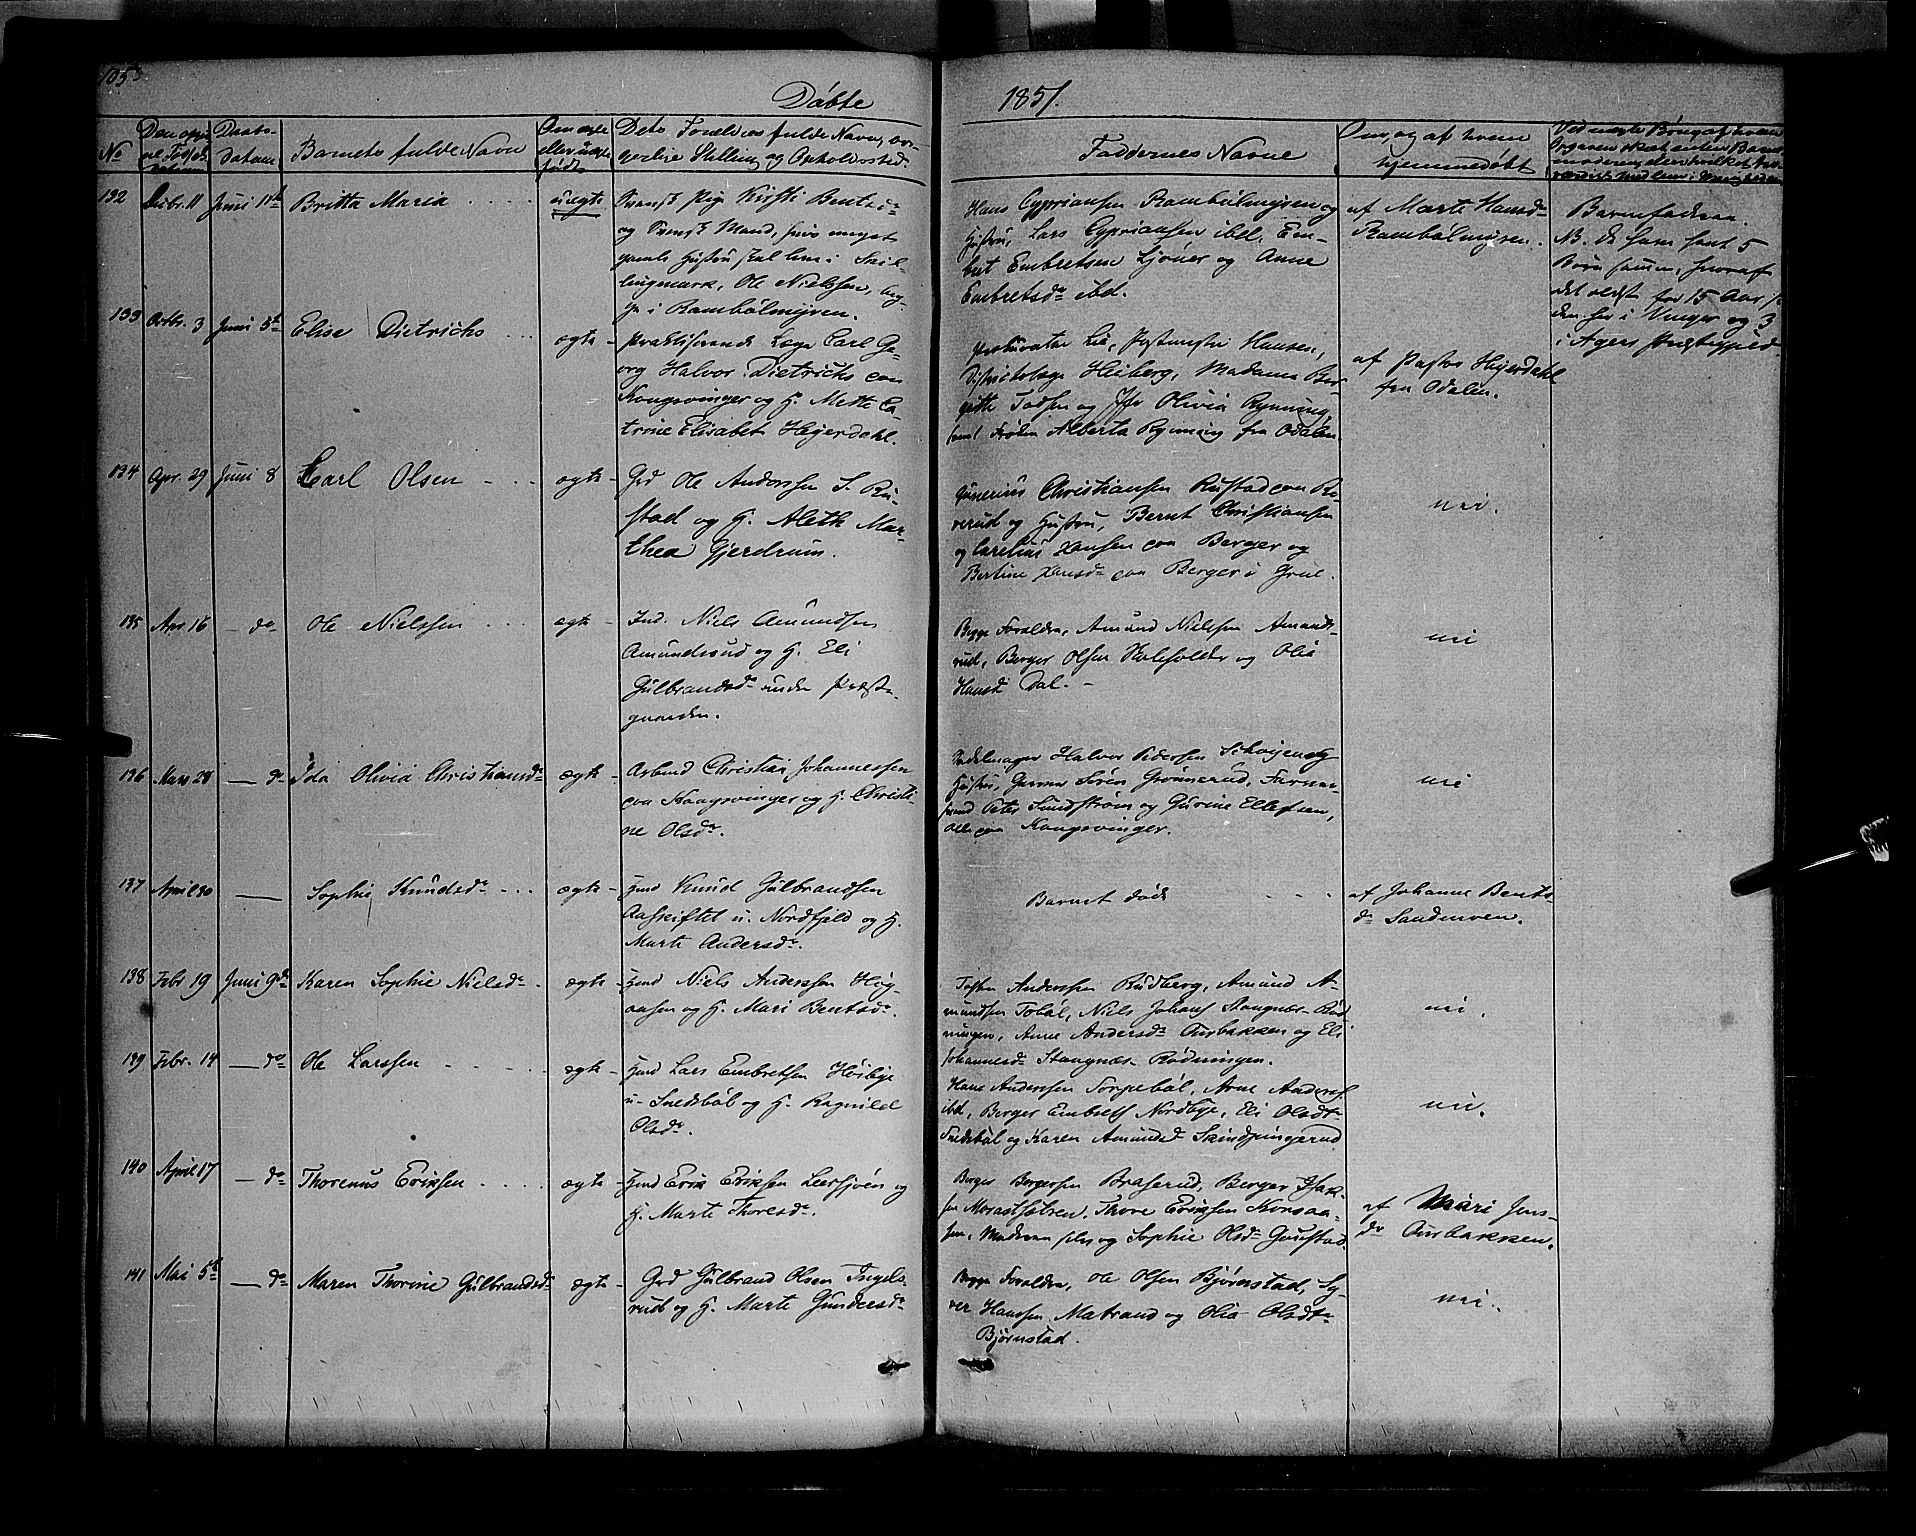 105
Døbte
1851.
No
Barnets fulde Navn
Dets Forældres fulde Navn, bor-
gerlige Stilling og Opholdssted
Faddernes Navne
Om og af hvem
hjemmedøbt
132 Juni 11te Britta Maria uægte
Svensk Pige Kirsti Bentsdr
og Svensk Mand,
gamle Hustru
Ole Nielsen,
i Rambølmyren.
Hans Cyprianssen Rambølmyren og
Hustru, Lars Cypriansen ibd., Em-
bret Embretsen Ljøner og Anne
Embretsdr ibd.
af Marte Hansdr
Rambølmyren.
Barnefaderen
NB. de have havt 5
Børn sammen, hvoraf
det ældste for 15 Aar
her i Vinger og 3
i Agers Præstegjeld
133 Octbr. 3 Juni 5te Elise Dietrichs ægte
Praktiserende Læge Carl Ge-
org Halvor Dietrichs paa
Kongsvinger og H. Mette Ca-
trine Elisabet Hejerdahl.
Prokurator Lie, Postmester Hansen,
Districtslæge Heiberg, Madame Ber-
gitte Todsen og Jfr Olivia Rynning,
samt Frøken Alberta Rynning fra Odalen.
af Pastor Hejerdahl
fra Odalen.
134 Apr. 29 Juni 8 Carl Olsen ægte
Grd Ole Anderssen S. Ru-
stad og H. Aleth Mar-
thea Gjerdrum.
Gunerius Christiansen Rustad paa Ro-
verud og Hustru, Bernt Christiansen
og Carelius Hansen paa Berger og
Bertine Hansdr paa Berger i Grue.
nei.
135 Apr 16 do Ole Nielssen ægte
Ind. Niels Amundsen
Amundsrud og H. Eli
Gulbrandsdr under Præste-
gaarden.
Begge Forældre, Amund Nielsen Amunds-
rud, Berger Olsen Holsholder og Olia
Hansdr Dal.
nei
136 Mars 28 do Ida Olivia Christiansdr ægte
Arbmd Christian Johannessen
paa Kongsvinger og H. Christi-
ne Olsdr.
Sadelmager Halvor Pedersen Schøyen og
Hustru, Garver Søren Grønnerud, Farver-
svend Peter Sundstrøm og Gurine Ellefsen,
alle paa Kongsvinger.
nei
137 April 30 Sophie Knudsdr ægte
Hmd Knud Gulbrandsen
Aaskiftet u. Nordfjeld og H.
Marte Andersdr.
Barnet død
af Johanne Bents-
dr Sandmoen.
138 Febr 19 Juni 9de Karen Sophie Nielsdr ægte
Hmd Niels Anderssen Høg-
aasen og H. Mari Bentsdr.
Tosten Anderssen Rudberg, Amund A-
mundsen Tobøl, Niels Johans Stangnæs-Rød-
ningen, Anne Andersdr Aurbakken og Eli
Johannesdr Stangnæs-Rødningen.
nei.
139 Febr. 14 do Ole Larssen ægte
Hmd Lars Embretsen Høibye
u. Snedsbøl og H. Ragnild
Olsdr.
Hans Anderssen Sorpebøl, Arne Anders
ibd, Berger Embrets Nordbye, Eli Olsdtr
Snedsbøl og Karen Amundsd Skindpungerud
nei.
140 April 17 do Thorenus Eriksen ægte
Hmd Erik Eriksen Leersjøen og
H. Marte Thoresdr.
Berger Bergersen Braserud, Berger Isak-
sen Morastsætren, Thore Eriksen Korsaa-
sen, Moderen selv og Sophie Olsdr Gunstad.
af Mari Jens-
dr Aurbakken.
141 Mai 5te do Maren Thorine Gulbrandsdr ægte
Grd Gulbrand Olsen Ingels-
rud og H. Marte Gundersdr
Begge Forældre, Ole Olsen Bjørnstad, Sy-
ver Hanssen Matrand og Olia Olsdtr
Bjørnstad.
nei.